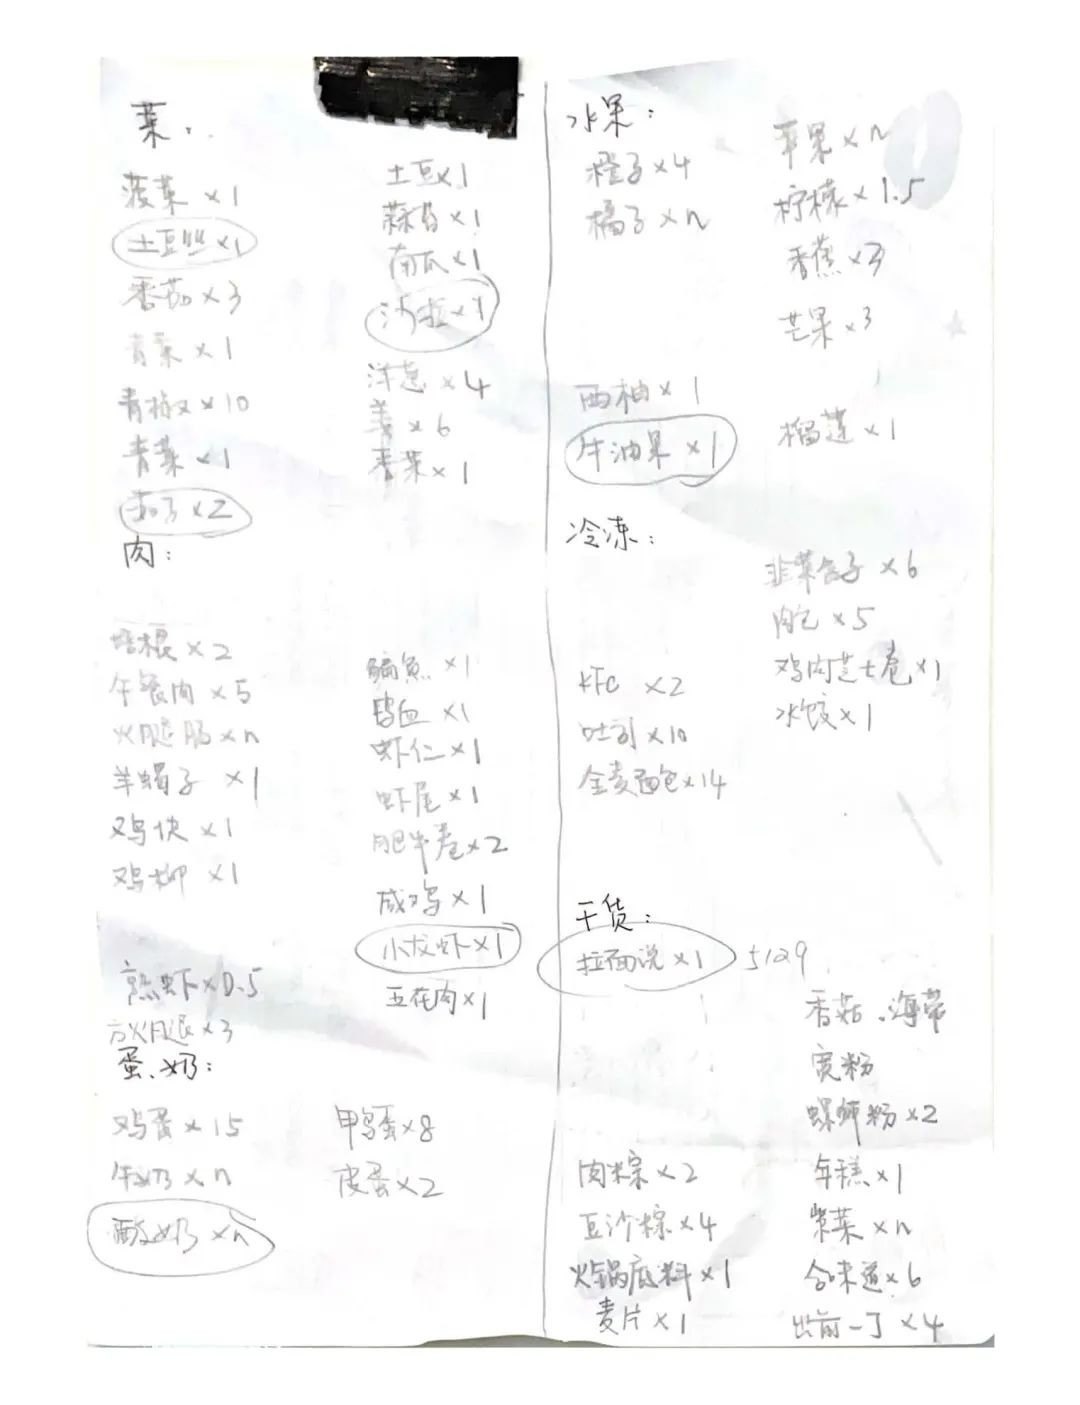 菜：
菠菜×1
土豆丝×1
番茄×3
青菜×1
青椒×10
青菜×1
茄子×2
土豆×1
蒜苗×1
南瓜×1
沙拉×1
洋葱×4
姜×6
香菜×1
肉：
培根×2
午餐肉×5
火腿肠×n
羊蝎子×1
鸡快×1
鸡柳×1
熟虾×0.5
方火腿×3
鳊魚×1
血×1
虾仁×1
虾尾×1
肥牛卷×2
咸鸡×1
小龙虾×1
五花肉×1
蛋、奶：
鸡蛋×15
牛奶×n
酸奶×n
鸭蛋×8
皮蛋×2
水果：
橙子×4
橘子×n
西柚×1
牛油果×1
苹果×n
柠檬×1.5
香蕉×3
芒果×3
榴莲×1
冷冻：
KFC×2
吐司×10
全麦面包×14
韭菜合子×6
肉包×5
鸡肉芝士卷×1
水饺×1
干货：
拉面说×1 5129
香菇、海带
宽粉
螺蛳粉×2
肉粽×2
豆沙粽×4
火锅底料×1
麦片×1
年糕×1
紫菜×n
合味道×6
出前一丁×4